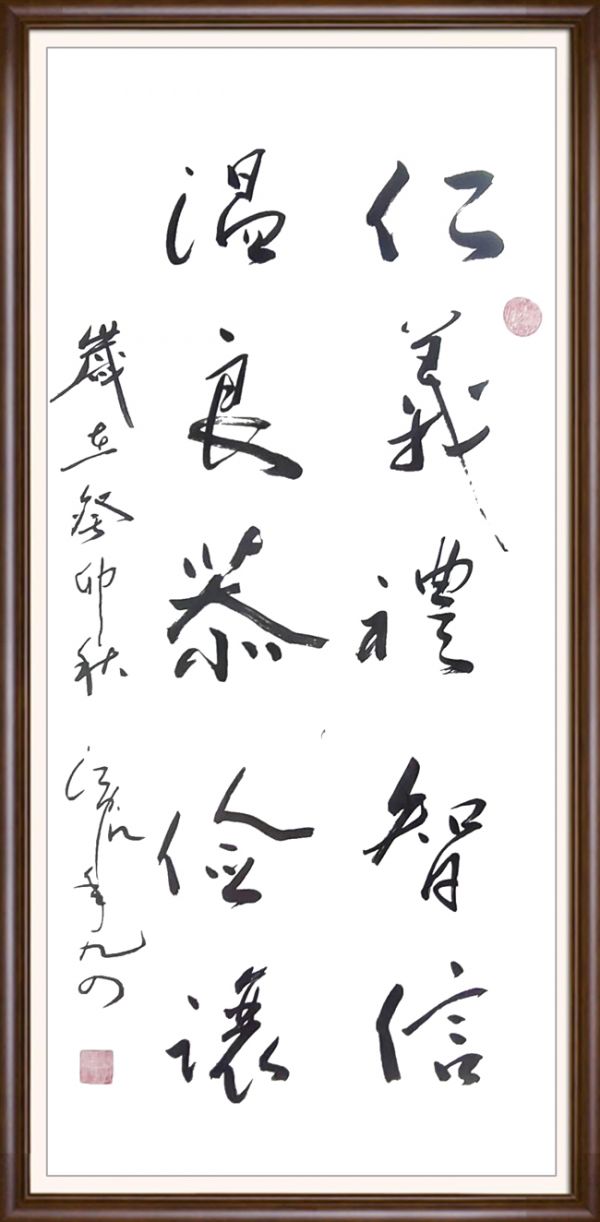 仁義禮智信
溫良恭儉讓
歲在癸卯秋
年九四